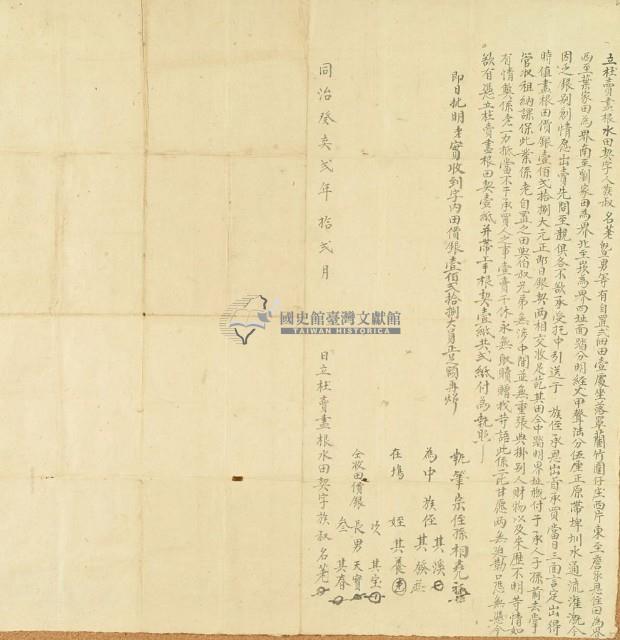 立杜賣盡根水田契字人族叔名荖暨男等有自置水田壹處坐落罩蘭竹圍仔庄西片東至詹承恩侄田為界
西至葉家田為界南至劉家田為界北至崁為界四址面踏分明經丈甲聲法分伍厘正原帶埤圳水通流灌溉今
因乏銀別創情愿出賣先問至親俱各不欲承受托中引送于 族侄承恩出首承買當日三面言定出得
時值盡根田價銀壹佰弍拾捌大元正即日銀契兩相交收足訖其田仝中踏明界址概付于承人子孫前去掌
管收租納課保此業係老自置之田與伯叔兄弟無涉中間並無重張典掛別人財物以及來歷不明等情如
有情弊係老一力抵當不干承買人之事壹賣千休永無取贖贈找等語此係二元甘愿兩無迫勒口恐無憑今
欲有憑立杜賣盡根田契壹紙并帶上手根契壹紙共弍紙付為執照
即日批明老實收到字內田價銀壹佰弍拾捌大員正足願再炤
執筆宗侄孫相堯
為中族侄 其漢
其
在塲 姪其養
仝收田價銀 次 其宝
長男天寶
叁 其春
同治癸亥弍年拾弍月 日立杜賣盡根水田契字族叔名荖
國史館臺灣文獻館
TAIWAN HISTORICA